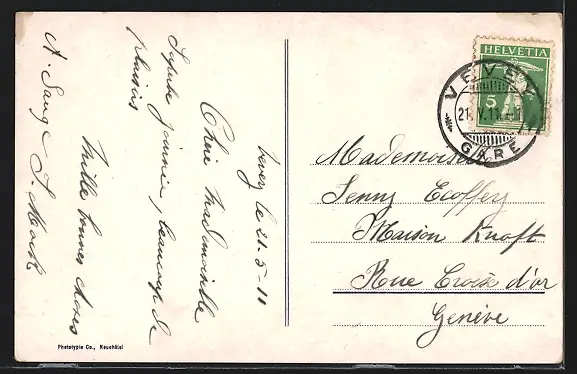 HELVETIA
5
VEVEY
21.V.11
GARE
Vevey le 21-5-11
Chère Mademoiselle
Superbe journée, beaucoup de
plaisirs
Mille bonnes choses
Mademoiselle
Jenny Ecoffey
Maison Knoft
Rue Croix d'or
Genève
Phototypie Co., Neuchâtel